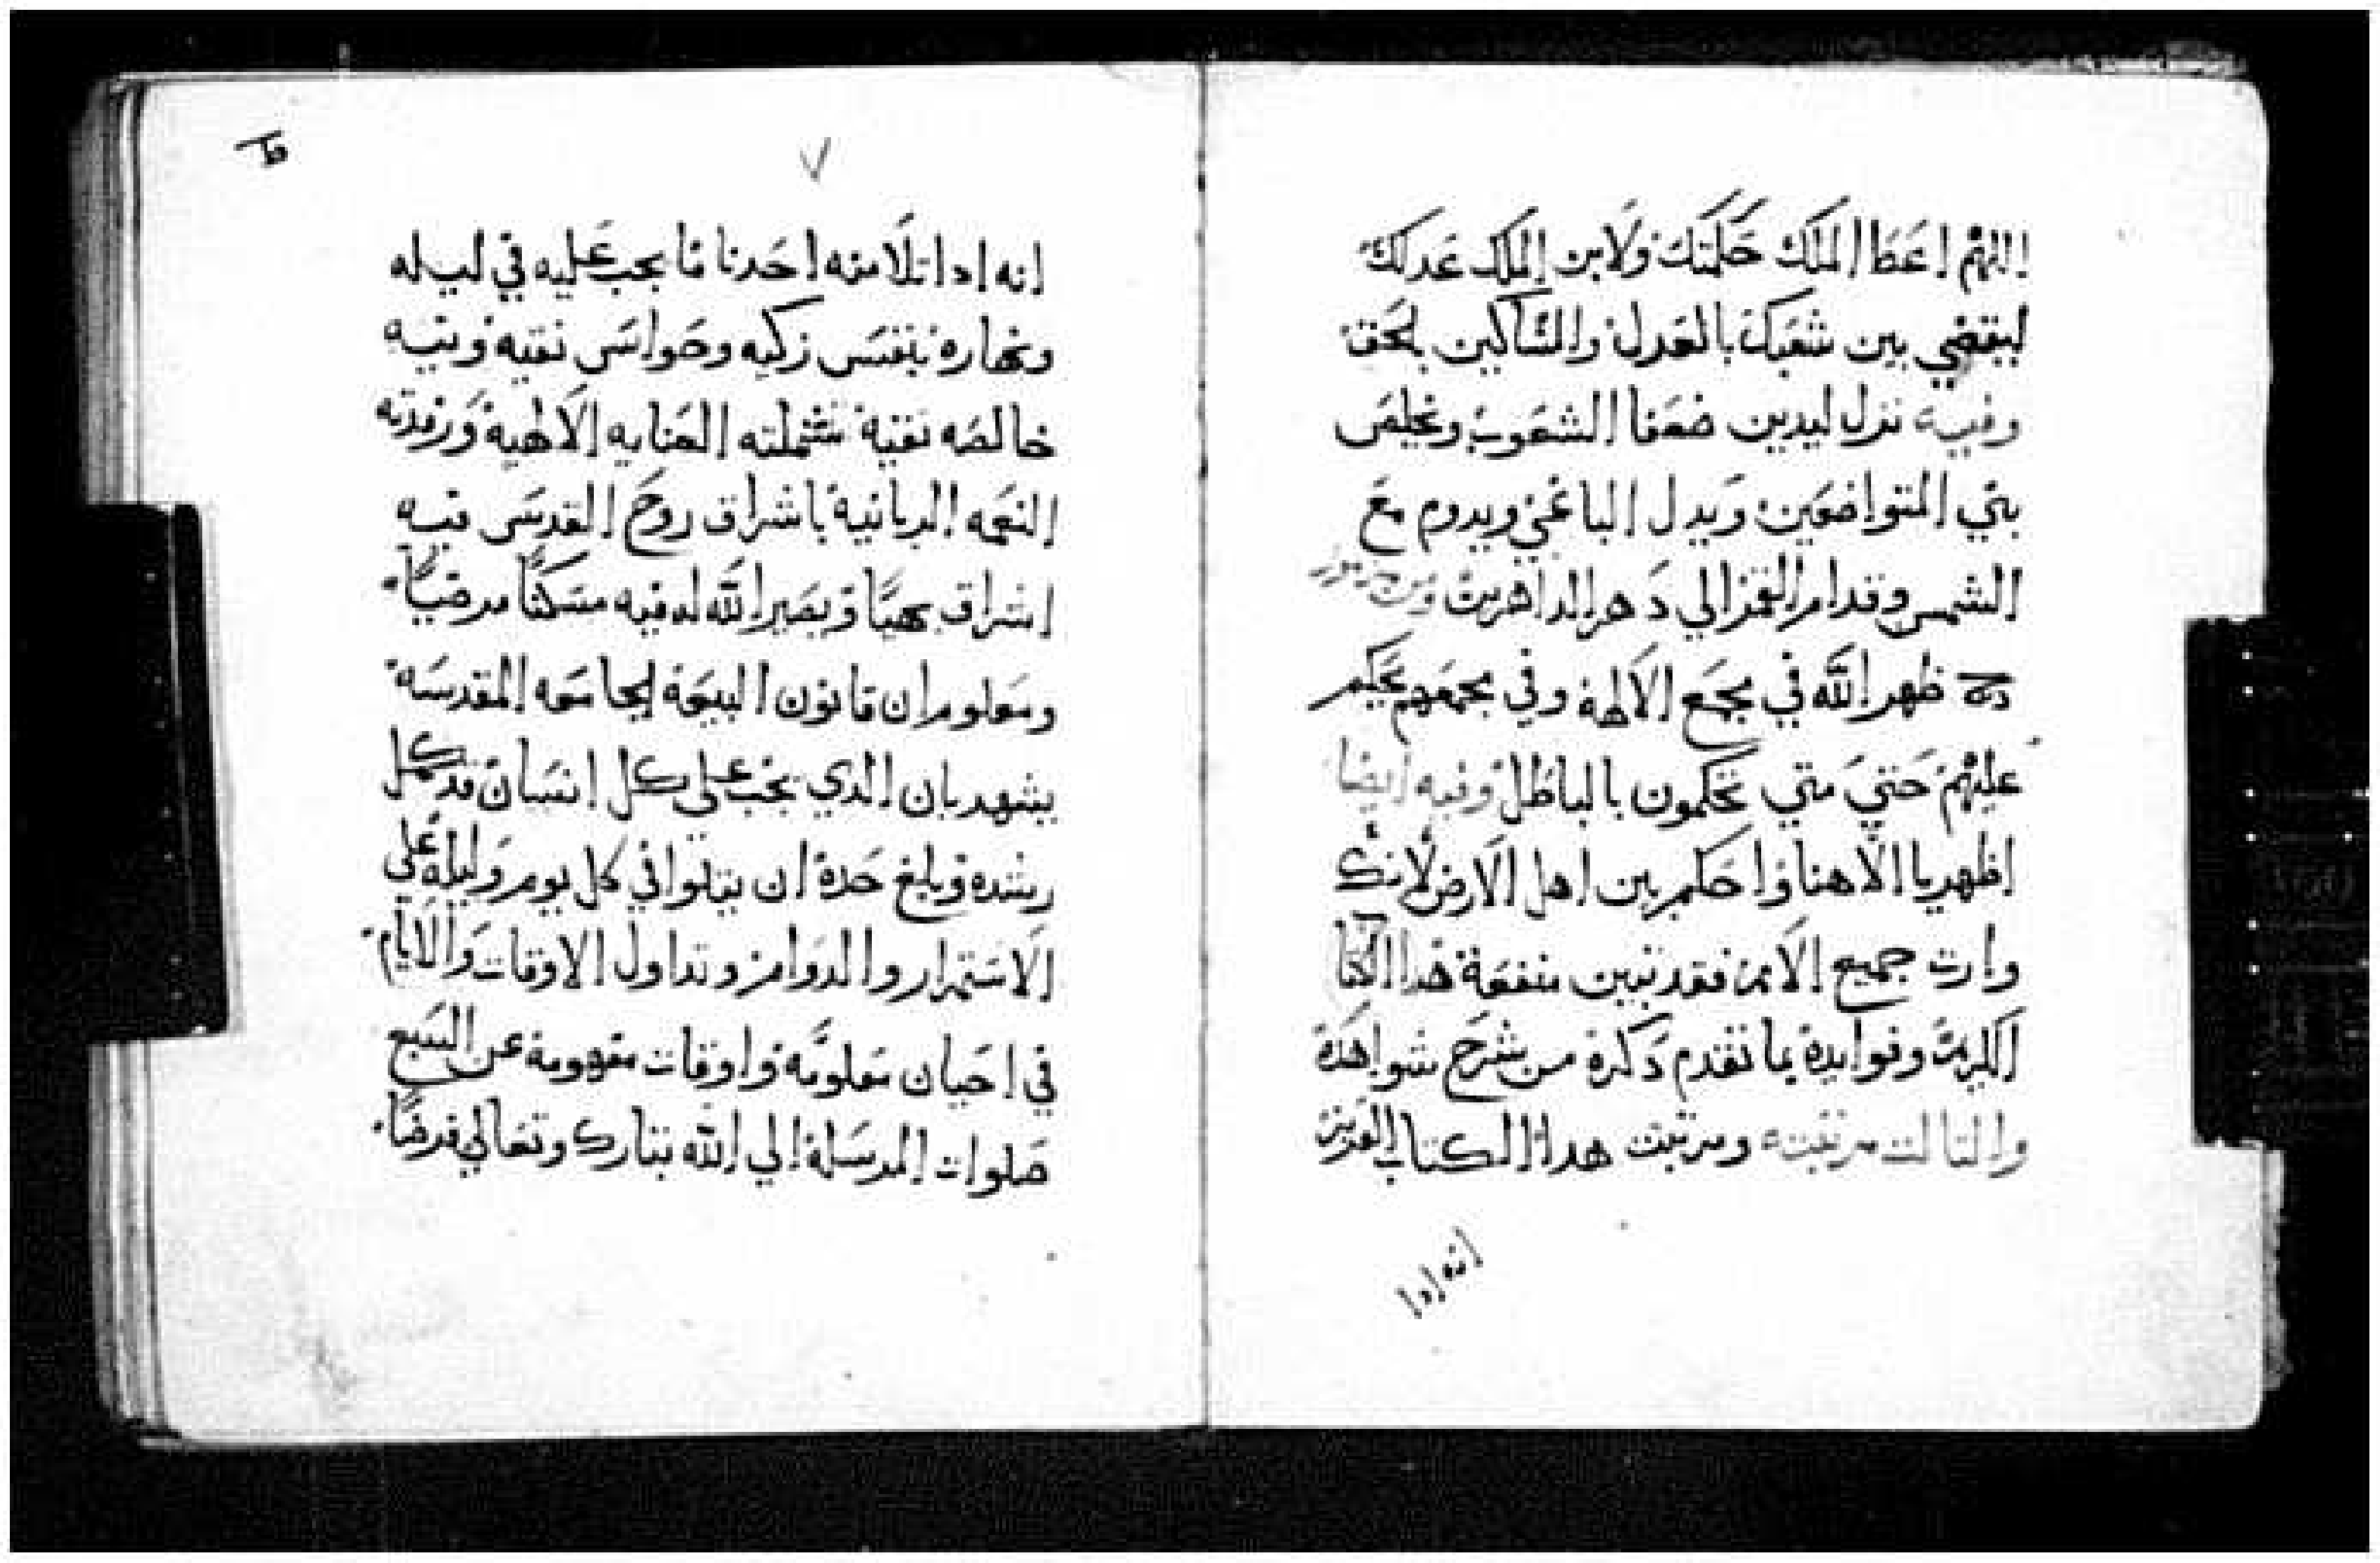 اللهم اعط الملك حكمتك ولابن الملك عدلك
ليقضي بين شعبك بالعدل والمساكين بلحق
وفيه نزل ليدين ضعفا الشعوب ويخلص
بني المتواضعين ويدل الباغي ويدوم مع
الشمس وقدام القمر الي دهر الداهرين ومن مزمور
ظهر الله في مجمع الالهة وفي مجمعهم يحكم
عليهم حتي متي تحكمون بالباطل وفيه ايضا
اظهر يا الاهنا واحكم بين اهل الارض لانك
وارت جميع الامم فقد تبين منفعة هدا الكتاب
الكريم وفوايده بما تقدم دكره من شرح شواهده
والتالت مرتبته ومرتبت هدا الكتاب العزيز
انه ادا
٧
انه ادا تلا منه احدنا ما يجب عليه في ليله
ونهاره بنفس زكيه وحواس نقيه ونيه
خالصه نقية شملته العنايه الالهية ورفدته
النعمه الربانية باشراق روح القدس فيه
اشراق بهيًا ويصير الله لديه مسكنًا مرضيًا
ومعلوم ان قانون البيعة الجامعه المقدسه
يشهد بان الدي يجب علي كل انسان قد كمل
رشده وبلغ حده ان يتلوا في كل يوم وليلة علي
الاستمرار والدوام وتداول الاوقات والايام
في احيان معلومه واوقات مفهومة عن السبع
صلوات المرسلة الي الله تبارك وتعالي فرضًا